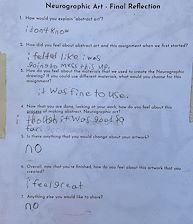 Neurographic Art - Final Reflection
1. How would you explain "abstract art"?
i dont know
2. How did you feel about abstract art and this assignment when we first started?
i felt like i was
going to mess this up.
3. How do you feel about the materials that we used to create the Neurographic
drawing? If you could use different materials, what would you change for this
assignment?
it was fine to use.
4. Now that you are done, looking at your work, how do you feel about this
process of making abstract, Neurographic art?
it was good to
5. Is there anything that you would change about your artwork?
no
6. Overall, now that you're finished, how do you feel about this artwork that you
created?
i feel great
7. Anything else you would like to share?
no